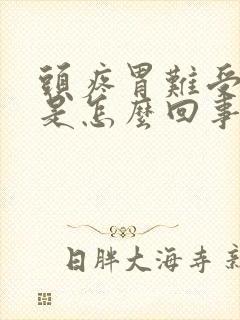 頭疼胃難受
是怎麼回事
日胖大海寺